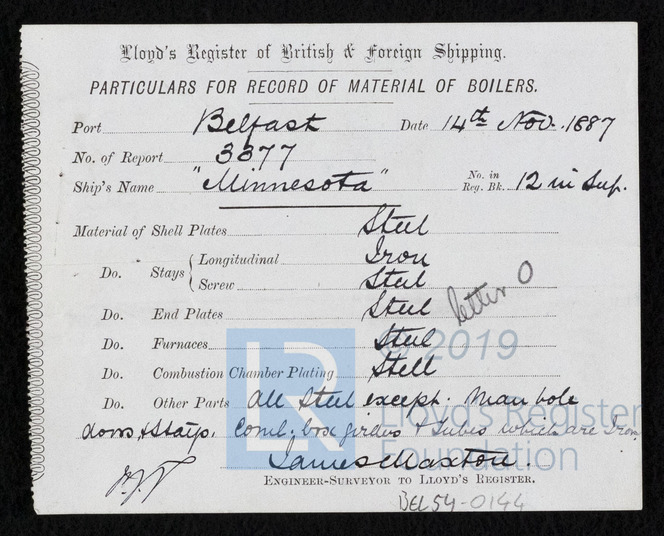 Lloyd's Register of British & Foreign Shipping.
PARTICULARS FOR RECORD OF MATERIAL OF BOILERS.
Port Belfast Date 14th Nov. 1887
No. of Report 3377
Ship's Name "Minnesota" No. in Reg. Bk. 12 in Sup.
Material of Shell Plates Steel
Do. Stays { Longitudinal Iron
Screw Steel
Do. End Plates Steel
letter O
Do. Furnaces Steel
© 2019
Do. Combustion Chamber Plating Stell
Do. Other Parts All Steel except. Man hole
doors & Stays. Comb. box girders & Tubes which are Iron
LR Lloyd's Register Foundation
James Maxton.
ENGINEER-SURVEYOR TO LLOYD'S REGISTER.
BEL54-0144